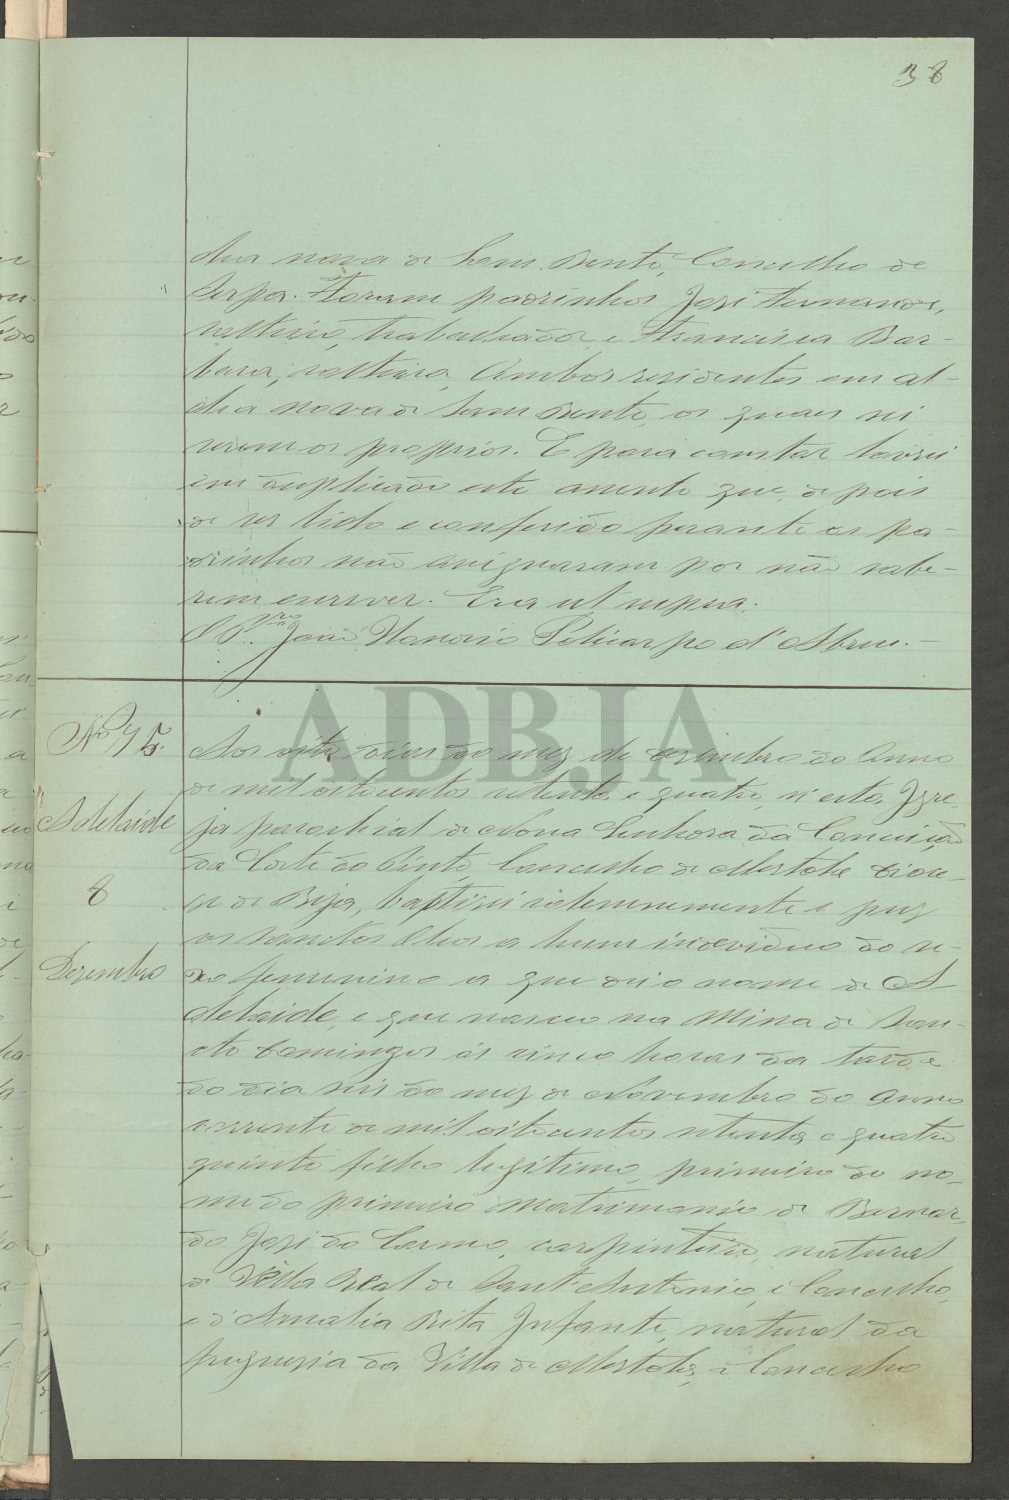 38
dea nova de Sam Bento, Concelho de
Serpa. Foram padrinhos José Fernandes,
solteiro, trabalhador, e Francisca Bar-
bara, solteira, Ambos residentes em al-
dea nova de Sam Bento, os quaes
serem os proprios. E para constar lavrei
em duplicado este assento que, depois
de ser lido e conferido perante os pa-
drinhos não assignaram por não sabe-
rem escrever. Era ut supra.
O P.e João Honorio Policarpo d'Abreu.-
ADBJA
Nº 75.
Adelaide
8
Dezembro
Aos oito dias do mez de dezembro do anno
de mil oitocentos setenta e quatro, n'esta Igre-
ja parochial de Nossa Senhora da Conceição
da Corte do Pinto, Concelho de Mertola Dioce-
se de Beja, baptisei solemnemente e puz
os sanctos Oleos a hum individuo do se-
xo femenino a que dei o nome de A
delaide, e que nasceu na Mina de San-
cto Domingos ás cinco horas da tarde
do dia seis do mez de Novembro do anno
corrente de mil oitocentos setenta e quatro
quinto filho legitimo, primeiro do no-
me do primeiro Matrimonio de Bernar-
do José do Carmo, carpinteiro, natural
de Villa Real de Sant'Antonio, e Concelho,
e d'Amalia Rita Infante, natural da
freguesia da Villa de Mertola, e Concelho